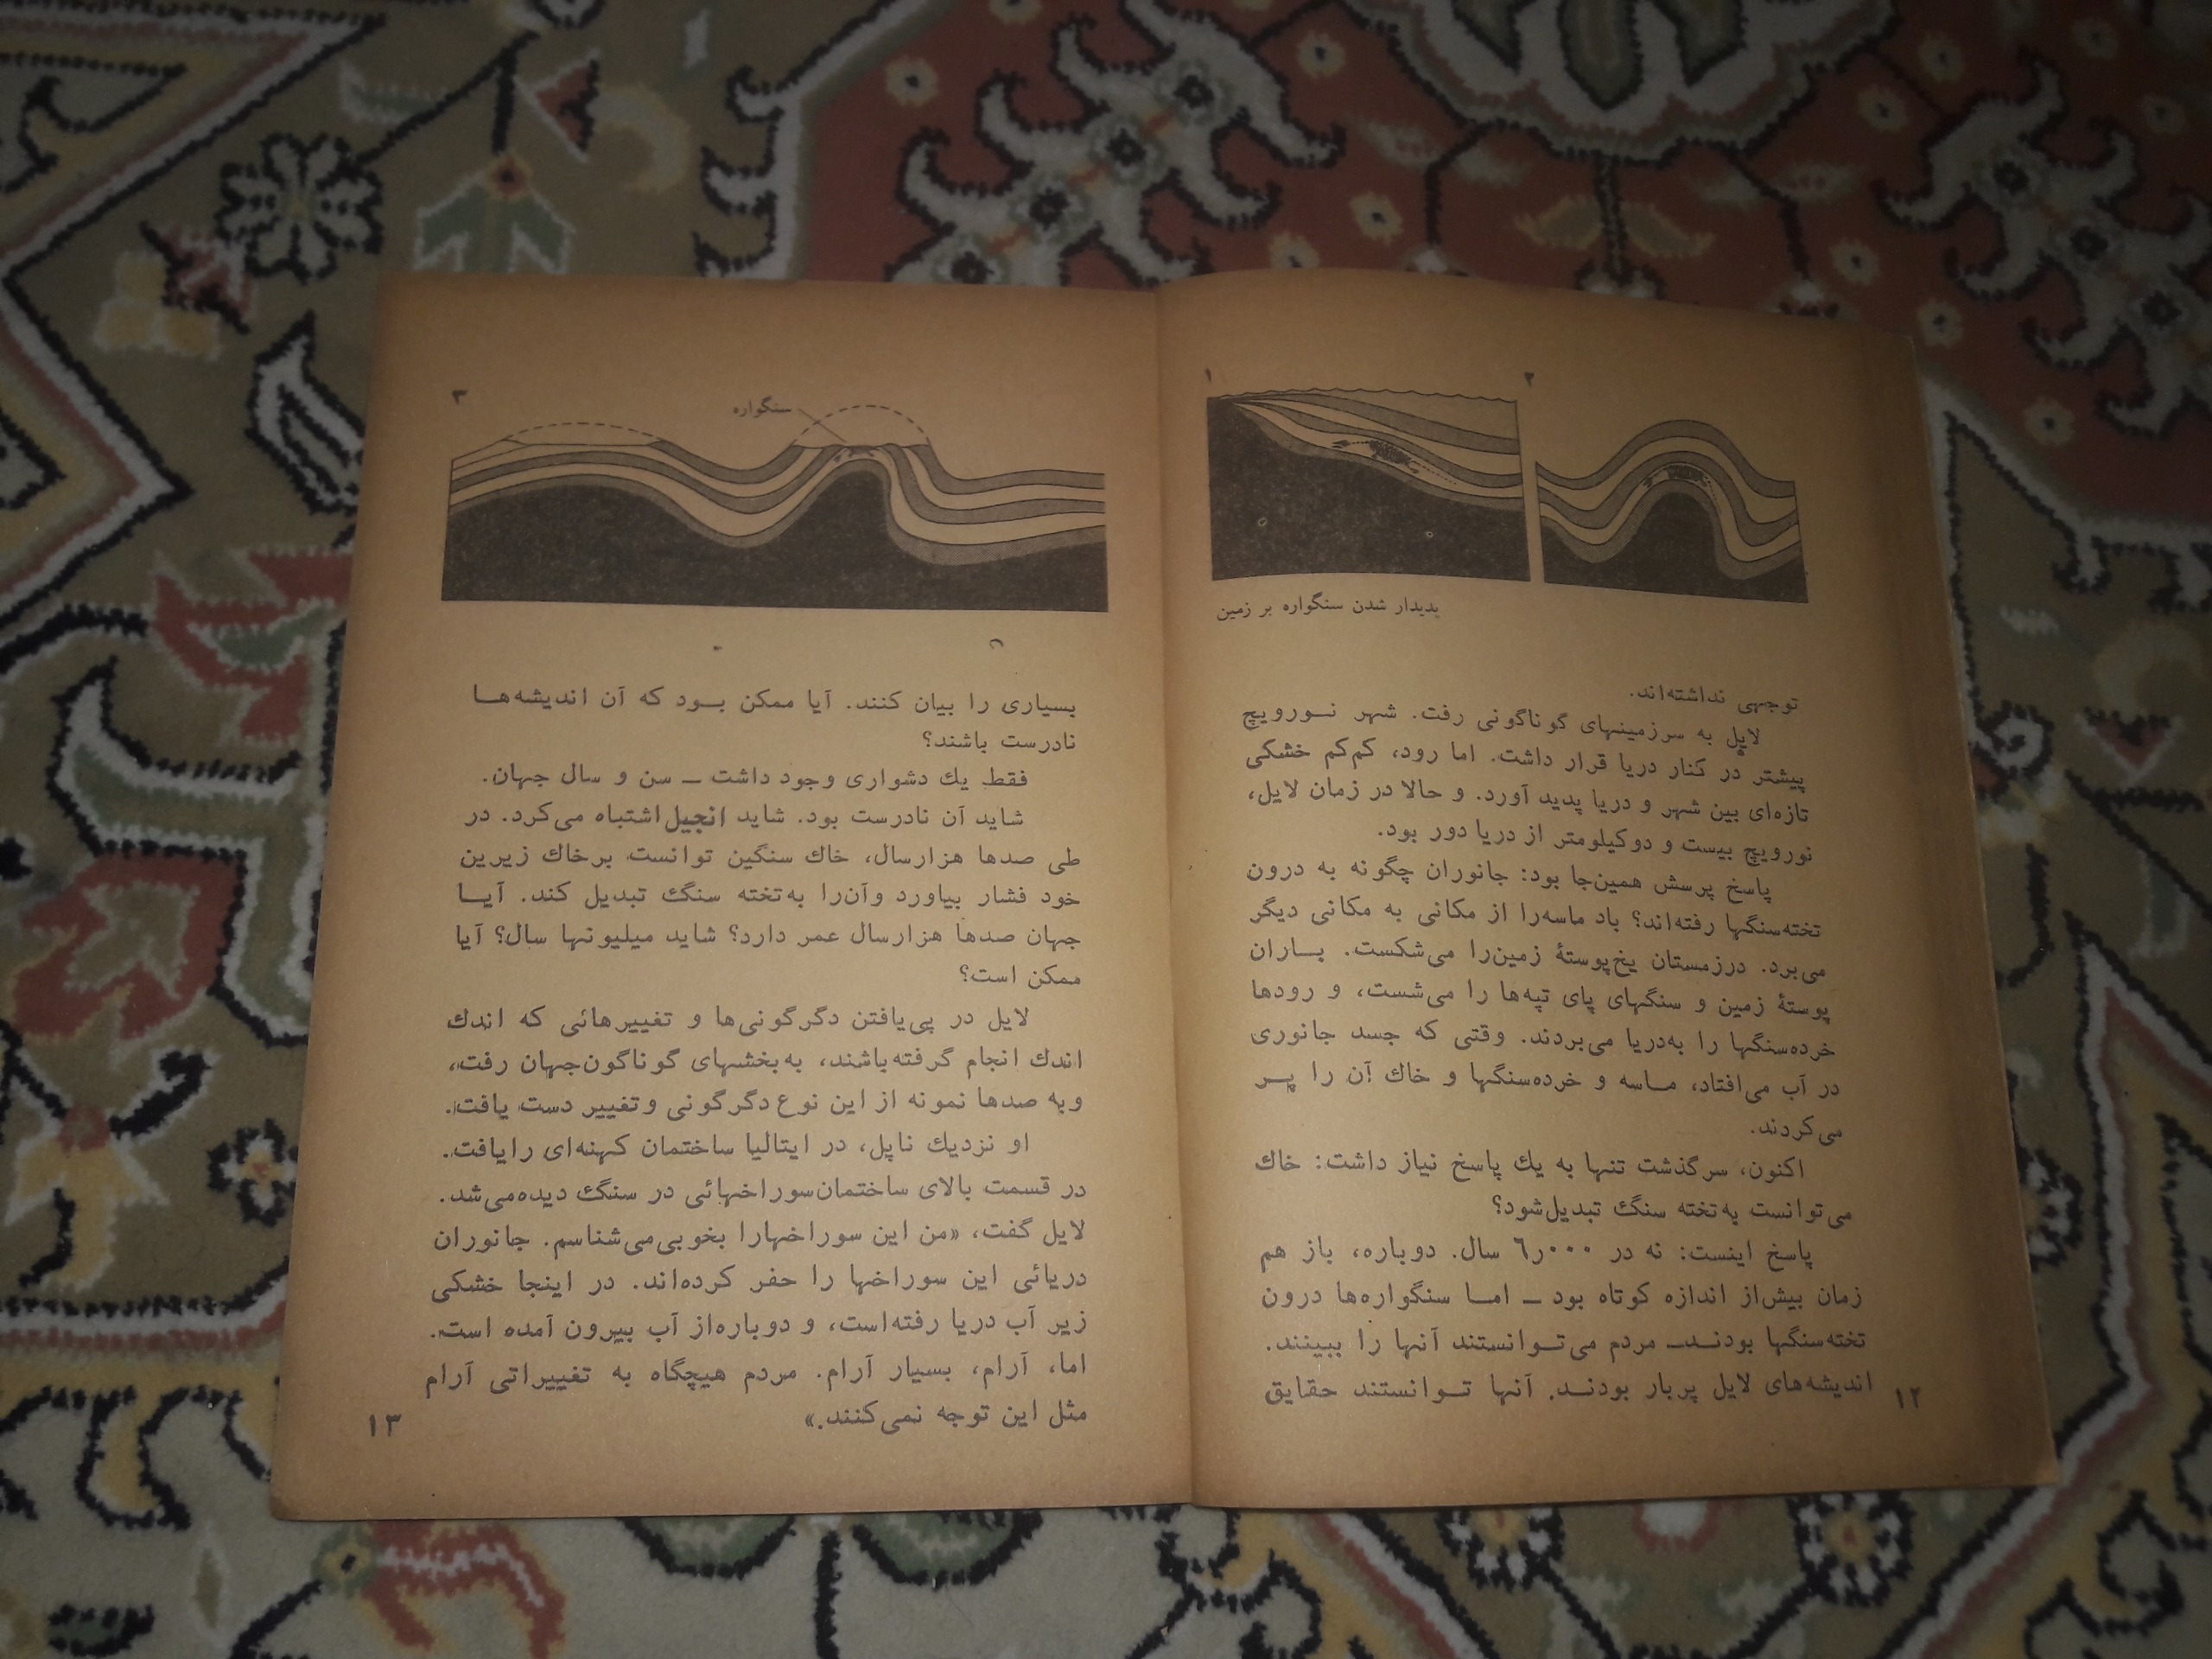 ۱
۲
پدیدار شدن سنگواره بر زمین
توجهی نداشته‌اند.
لایل به سرزمینهای گوناگونی رفت. شهر نــورویچ
پیشتر در کنار دریا قرار داشت. اما رود، کم‌کم خشکی
تازه‌ای بین شهر و دریا پدید آورد. و حالا در زمان لایل،
نورویچ بیست و دوکیلومتر از دریا دور بود.
پاسخ پرسش همین‌جا بود: جانوران چگونه به درون
تخته‌سنگها رفته‌اند؟ باد ماسه‌را از مکانی به مکانی دیگر
می‌برد. درزمستان یخ‌پوستهٔ زمین‌را می‌شکست. بــاران
پوستهٔ زمین و سنگهای پای تپه‌ها را می‌شست، و رودها
خرده‌سنگها را به‌دریا می‌بردند. وقتی که جسد جانوری
در آب می‌افتاد، مــاسه و خرده‌سنگها و خاك آن را پــر
می‌کردند.
اکنون، سرگذشت تنها به یك پاسخ نیاز داشت: خاك
می‌توانست به‌تخته سنگ تبدیل‌شود؟
پاسخ اینست: نه در ۶٫۰۰۰ سال. دوباره، باز هم
زمان بیش‌از اندازه کوتاه بود ــ امــا سنگواره‌ها درون
تخته‌سنگها بودنــد ــ مردم می‌تــوانستند آنها را ببینند.
اندیشه‌های لایل پربار بودنــد. آنها تــوانستند حقایق
۱۲
۳
سنگواره
بسیاری را بیان کنند. آیا ممکن بــود که آن اندیشه‌هــا
نادرست باشند؟
فقط یك دشواری وجود داشت ــ سن و سال جهان.
شاید آن نادرست بود. شاید انجیل اشتباه می‌کرد. در
طی صدها هزارسال، خاك سنگین توانست برخاك زیرین
خود فشار بیاورد وآن‌را به‌تخته سنگ تبدیل کند. آیــا
جهان صدها هزارسال عمر دارد؟ شاید میلیونها سال؟ آیا
ممکن است؟
لایل در پی‌یافتن دگرگونی‌ها و تغییرهائی که اندك
اندك انجام گرفته‌باشند، به‌بخشهای گوناگون‌جهان رفت،
وبه صدها نمونه از این نوع دگرگونی وتغییر دست یافت.
او نزدیك ناپل، در ایتالیا ساختمان کهنه‌ای رایافت.
در قسمت بالای ساختمان‌سوراخهائی در سنگ دیده‌می‌شد.
لایل گفت، «من این سوراخهارا بخوبی‌می‌شناسم. جانوران
دریائی این سوراخها را حفر کرده‌اند. در اینجا خشکی
زیر آب دریا رفته‌است، و دوباره‌از آب بیرون آمده است.
اما، آرام، بسیار آرام. مردم هیچگاه به تغییراتی آرام
مثل این توجه نمی‌کنند.»
۱۳